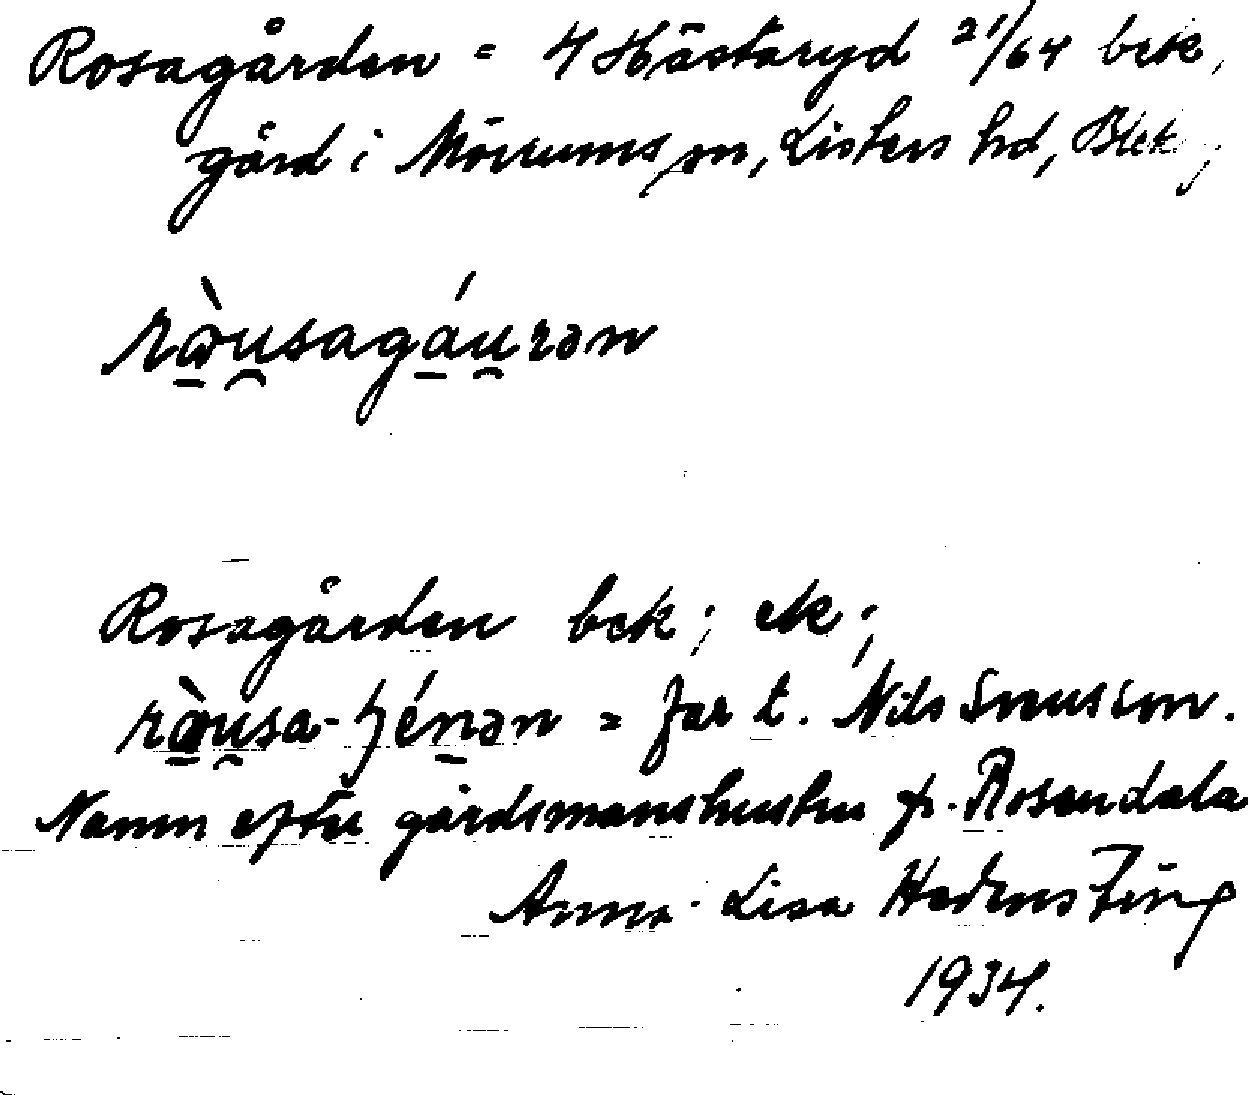 Rosagården = 4 Hästaryd 21/64 bek,
gård i Mörrums sn, Listers hd, Blek;
ràusagáurən
Rosagården bek; ek;
ràusa- = far t. Nils Snusson.
Namn efter gårdsmanshustru p. Rosendala
Anna-Lisa
1934.